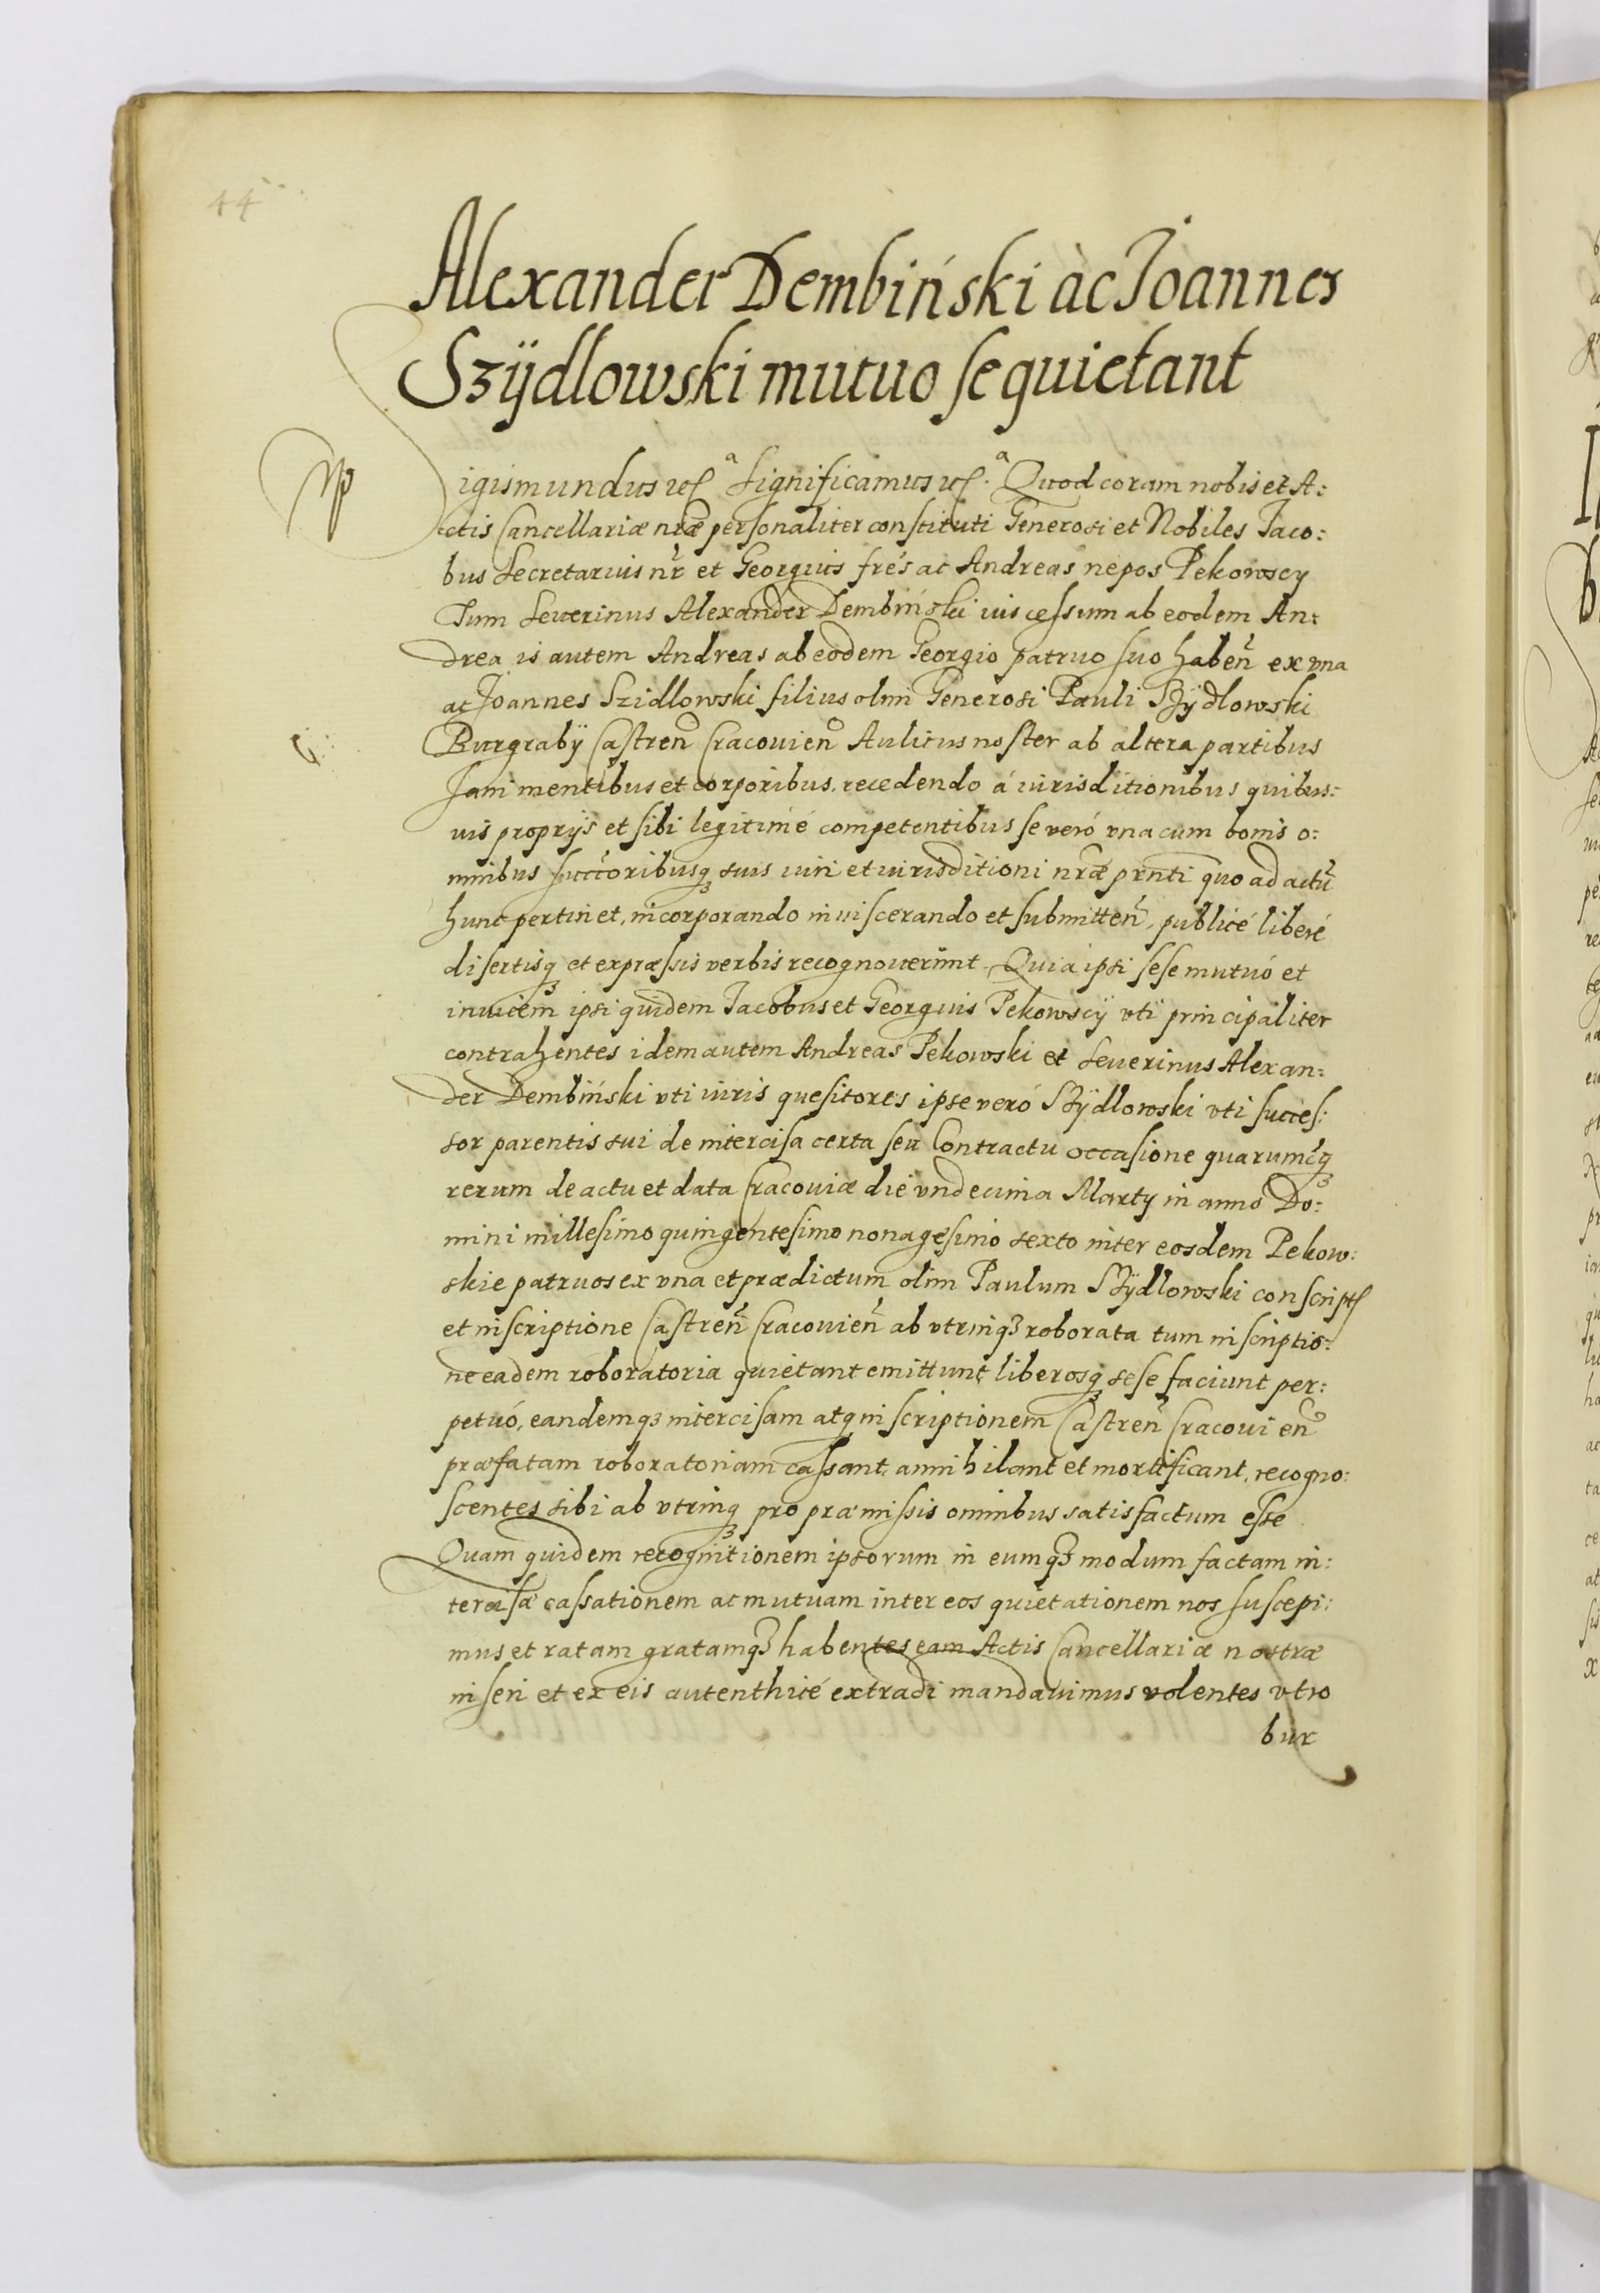 44
Alexander Dembiński àc Joannes
Szÿdlowski mutuo se quietant
Sigismundus etc. Significamus etc. Quod coram nobis et A:
ctis Cancellariæ nr̃æ personaliter constituti Generosi et Nobiles Jaco:
bus Secretarius nr̃ et Georgius fr̃es ac Andreas nepos Pekowscy
Tum Seuerinus Alexander Dembiński ius cessum ab eodem An:
drea is autem Andreas ab eodem Georgio patruo suo haben̄ ex vna
ac Joannes Szidlowski filius olim Generosi Pauli Szÿdlowski
Burgrabÿ Castren̄ Cracouien̄ Aulicus noster ab altera partibus
Sani mentibus et corporibus, recedendo á iurisditionibus quibus:
uis proprÿs et sibi legitimé competentibus se veró vna cum bonis o:
mnibus succ̄oribusq̨ suis iuri et iurisditioni nr̃æ pr̃nti quo ad actū
hunc pertinet, incorporando inuiscerando et submitten̄, publicé liberé
disertisq̨ et expræssis verbis recognouerunt. Quia ipsi sese mutuó et
inuicem ipsi quidem Jacobus et Georgius Pekowscÿ vti principaliter
contrahentes idem autem Andreas Pekowski et Seuerinus Alexan:
der Dembiński vti iuris quesitores ipse veró Szÿdlowski vti succes:
sor parentis sui de intercisa certa seu Contractu occasione quarumc̄q̨
rerum de actu et data Cracouiæ die vndecima Martÿ in anno Do:
mini millesimo quingentesimo nonagesimo sexto inter eosdem Pekow:
skie patruos ex vna et prædictum olim Paulum Szÿdlowski conscript
et inscriptione Castren̄ Cracouien̄ ab vtrinqꝫ roborata tum inscriptio:
ne eadem roboratoria quietant emittunt liberosq̨ sese faciunt per:
petuó, eandemqꝫ intercisam atq̨ inscriptionem Castren̄ Cracouien̄
præfatam roboratoriam cassant, annihilant et mortificant, recogno:
scentes sibi ab vtrinq̨ pro præmissis omnibus satisfactum esse
Quam quidem recognitionem ipsorum in eumqꝫ modum factam in:
tercisæ cassationem ac mutuam inter eos quietationem nos suscepi:
mus et ratam gratamqꝫ habentes eam Actis Cancellariæ nostræ
inseri et ex eis autenthicé extradi mandauimus volentes vt ro
bur